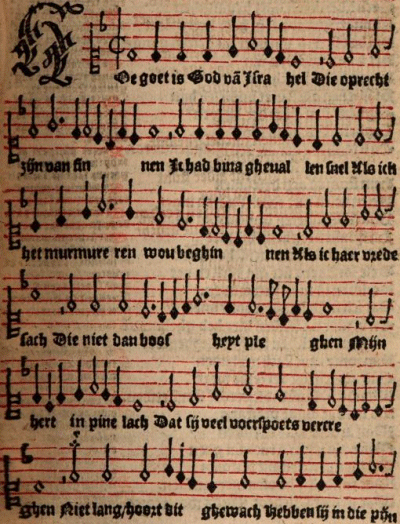 Oe goet is God vā Isra hel Die oprecht
zijn van sin nen Ic had bina gheual len snel Als ick
het murmure ren wou beghin nen Als ic haer vrede
sach Die niet dan boos heyt ple ghen Mijn
hert in pine lach Dat sij veel voerspoets vercre
ghen Niet lang/hoort dit ghewach Hebben sij in die pijn